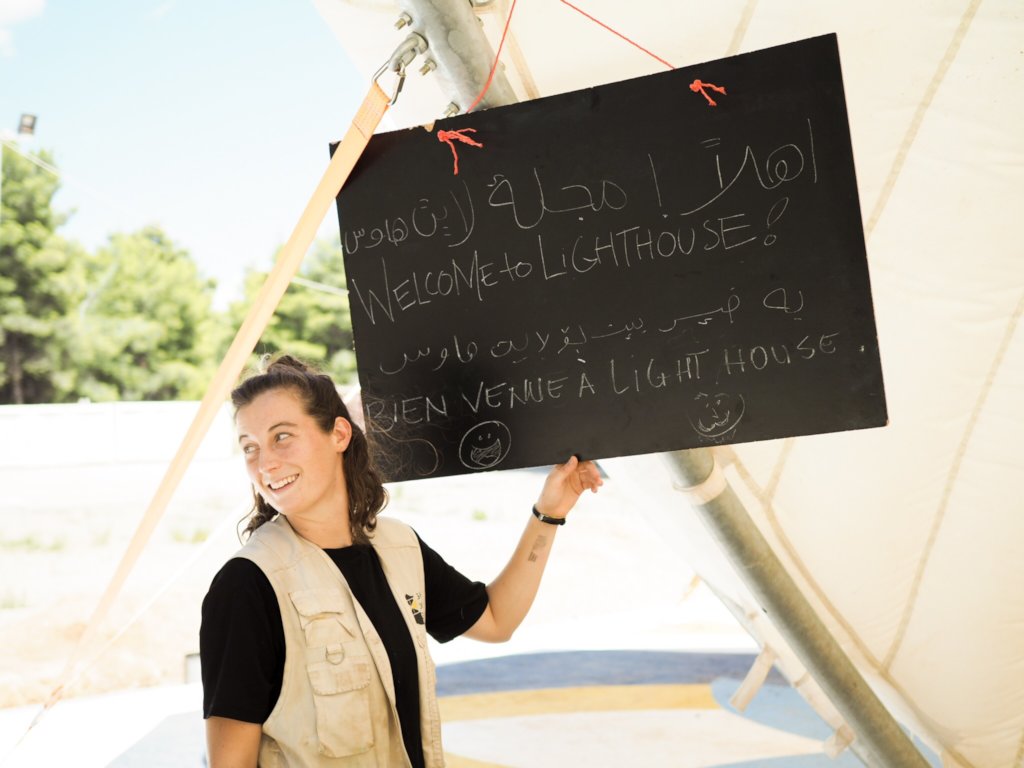 اهلاً ! مجلة لايت هاوس
WELCOME to LIGHTHOUSE!
به خیر بیت لایت هاوس
BIEN VENUE À LIGHT HOUSE.